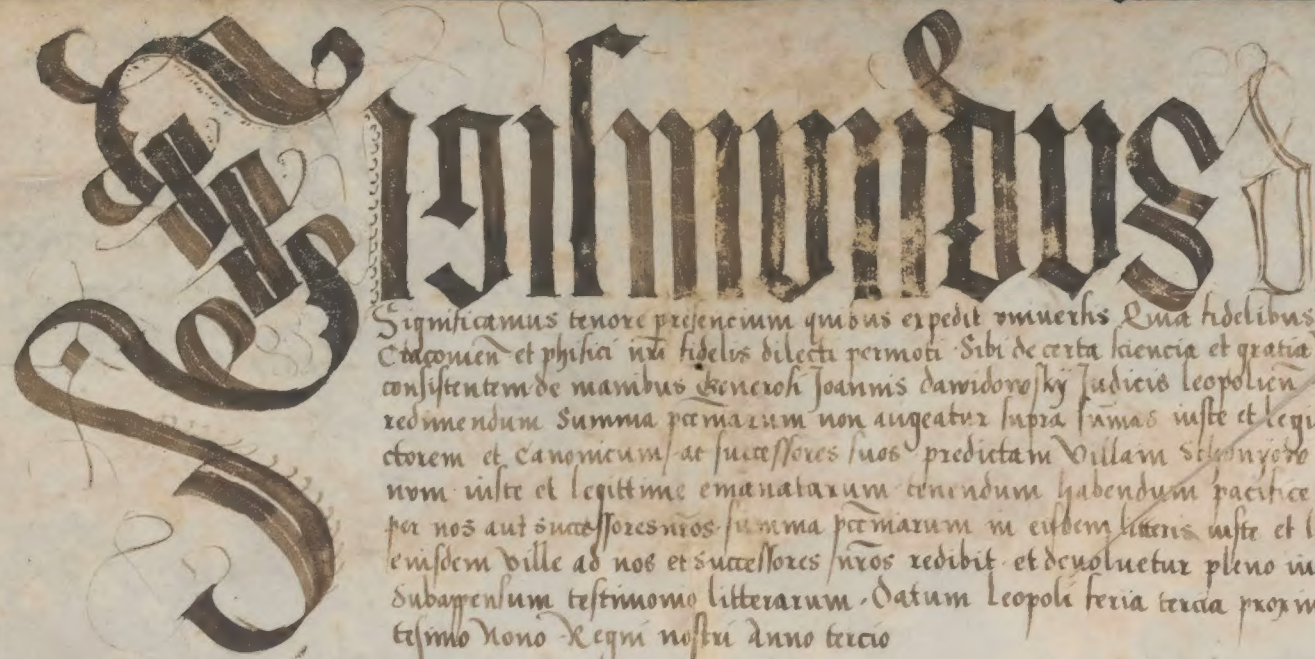 Sigismundus d
Significamus tenore presencium quibus expedit vniuersis Quia fidelibus
Cracouien et phisici nri fidelis dilecti permoti Sibi de certa sciencia et gratia
consistentem de manibus Generosi Joannis dawidowsky Judicis leopolien
redimendum Summa pccmarum non augeatur supra summas iuste et legi
ctorem et Canonicum ac successores suos predictam Villam
num iuste et legittime emanatarum tenendum habendum pacifice
per nos aut successores nros summa pccmarum in eisdem litteris iuste et l
eiusdem ville ad nos et successores nros redibit et deuoluetur pleno iu
Subappensum testimonio litterarum Datum leopoli feria tercia proxim
tesimo Nono Regni nostri Anno tercio